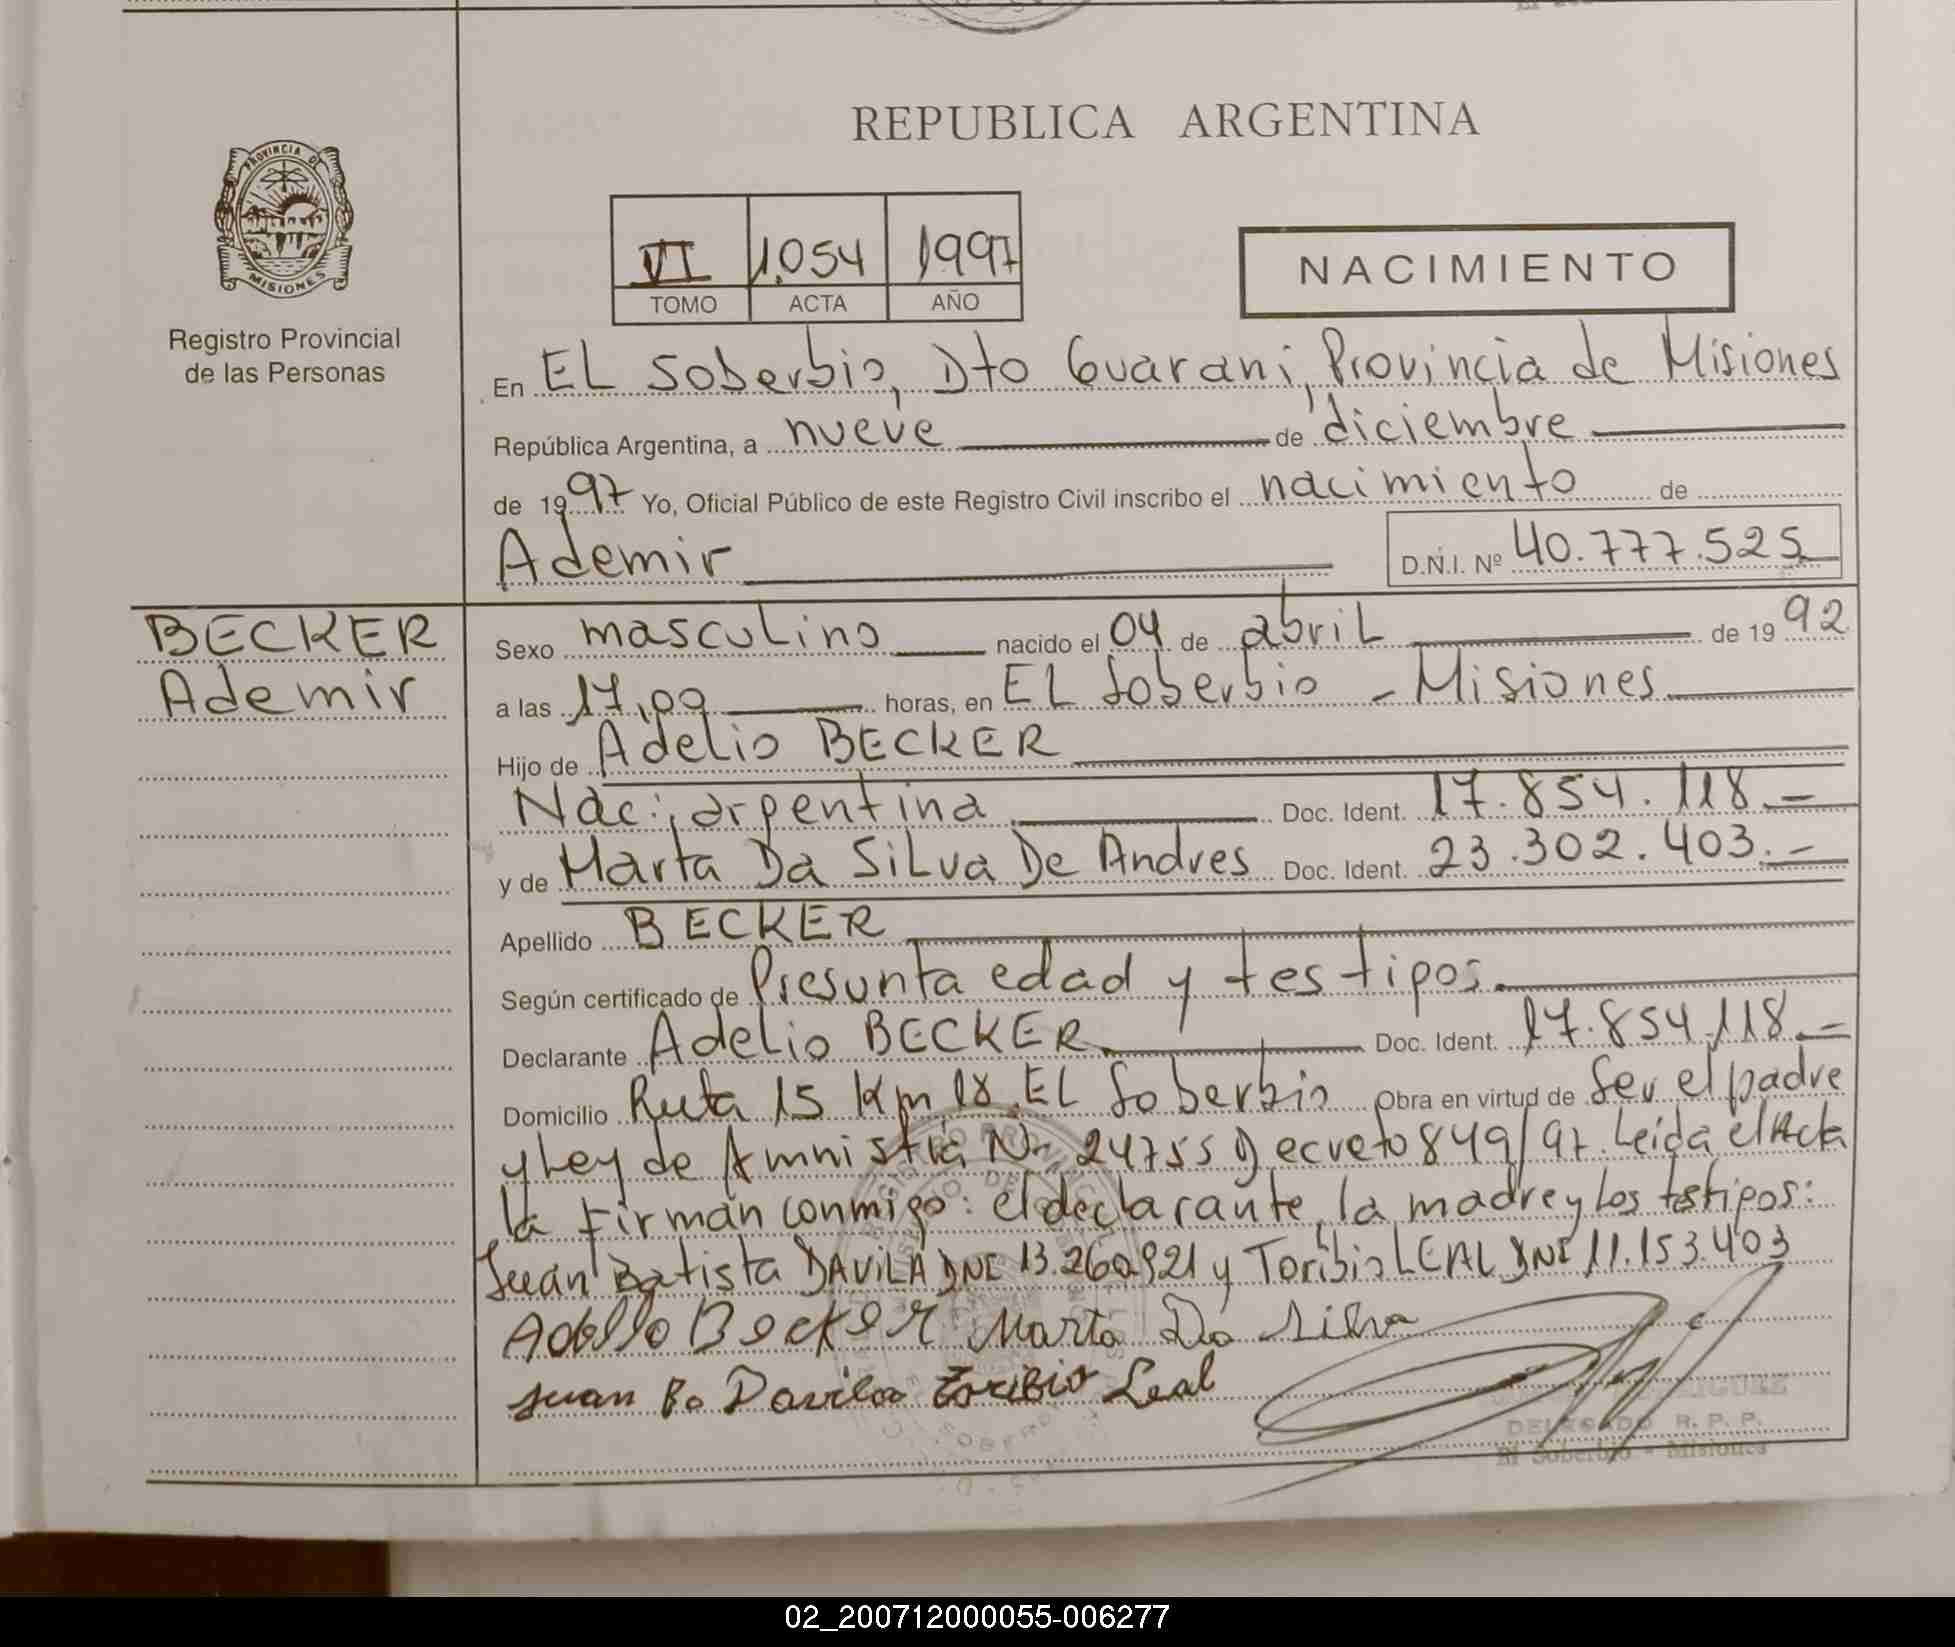 REPUBLICA ARGENTINA
PROVINCIA DE
MISIONES
Registro Provincial
de las Personas
VI 1.054 1997
TOMO ACTA AÑO
NACIMIENTO
En EL Soberbio, Dto Guarani, Provincia de Misiones
República Argentina, a nueve de diciembre
de 1997 Yo, Oficial Público de este Registro Civil inscribo el nacimiento de
Ademir
D.N.I. Nº 40.777.525
BECKER
Ademir
Sexo masculino nacido el 04 de abril de 1992
a las 17,00 horas, en EL Soberbio - Misiones
Hijo de Adelio BECKER
Nac: argentina Doc. Ident. 17.854.118.-
y de Marta Da Silva De Andres Doc. Ident. 23.302.403.-
Apellido BECKER
Según certificado de Presunta edad y testigos.
Declarante Adelio BECKER. Doc. Ident. 17.854.118.-
Domicilio Ruta 15 Km 18 EL Soberbio Obra en virtud de Ser el padre
y Ley de Amnistia Nr. 24755 Decreto 849/97. Leida el Acta
la firman conmigo: el declarante, la madre y los testigos:
Juan Batista DAVILA DNI 13.260.921 y Toribio LEAL DNI 11.153.403
Adelio Becker Marta Da Silva
Juan Ba Davila Toribio Leal
DELEGADO R. P. P.
El Soberbio - Misiones
02_200712000055-006277